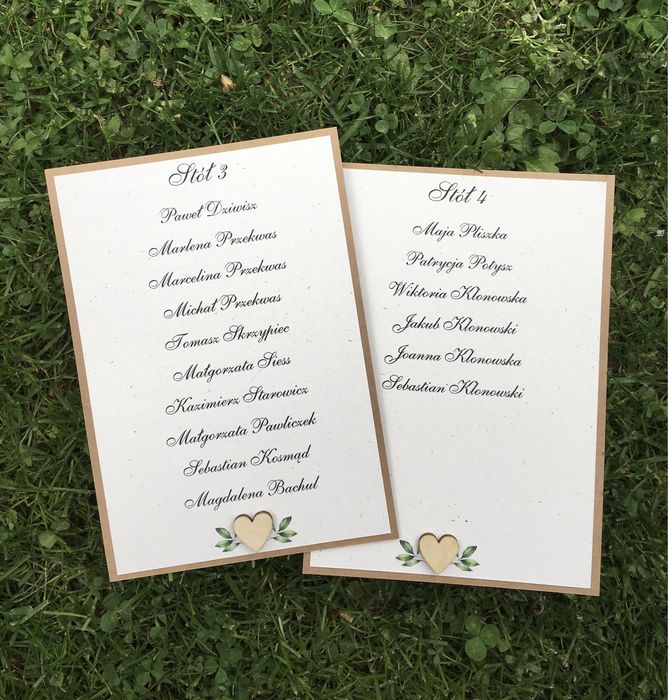 Stół 3
Paweł Dziwisz
Marlena Przekwas
Marcelina Przekwas
Michał Przekwas
Tomasz Skrzypiec
Małgorzata Siess
Kazimierz Starowicz
Małgorzata Pawliczek
Sebastian Kosmąd
Magdalena Bachul
Stół 4
Maja Pliszka
Patrycja Potysz
Wiktoria Klonowska
Jakub Klonowski
Joanna Klonowska
Sebastian Klonowski